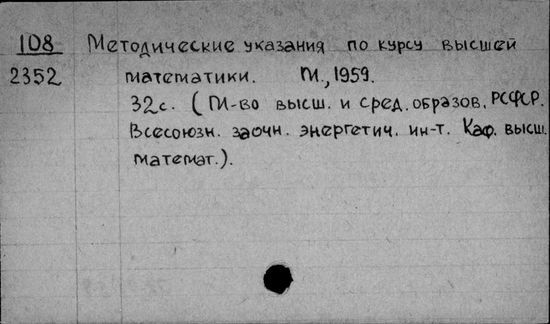 108 Методические указания по курсу высшей
2352 математики. М., 1959.
32с. (М-во высш. и сред. образов. РСФСР.
Всесоюзн. заочн. энергетич. ин-т. Каф. высш.
математ.).